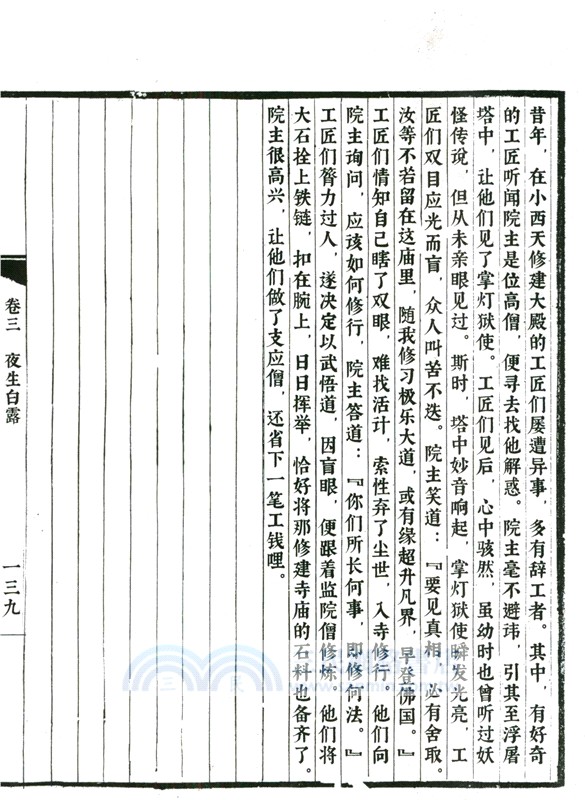 昔年，在小西天修建大殿的工匠们屡遭异事，多有辞工者。其中，有好奇
的工匠听闻院主是位高僧，便寻去找他解惑。院主毫不避玮，引其至浮屠
塔中，让他们见了掌灯狱使。工匠们见后，心中骇然，虽幼时也曾听过妖
怪传说，但从未亲眼见过。斯时，塔中妙音响起，掌灯狱使瞬发光亮，工
匠们双目应光而盲，众人叫苦不迭。院主笑道：『要见真相，必有舍取。
汝等不若留在这庙里，随我修习极乐大道，或有缘超升凡界，早登佛国。』
工匠们情知自己瞎了双眼，难找活计，索性弃了尘世，入寺修行。他们向
院主询问，应该如何修行，院主答道：『你们所长何事，即修何法。』
工匠们膂力过人，遂决定以武悟道，因盲眼，便跟着监院僧修炼。他们将
大石拴上铁链，扣在腕上，日日挥举，恰好将那修建寺庙的石料也备齐了。
院主很高兴，让他们做了支应僧，还省下一笔工钱哩。
卷三 夜生白露
一三九
三民